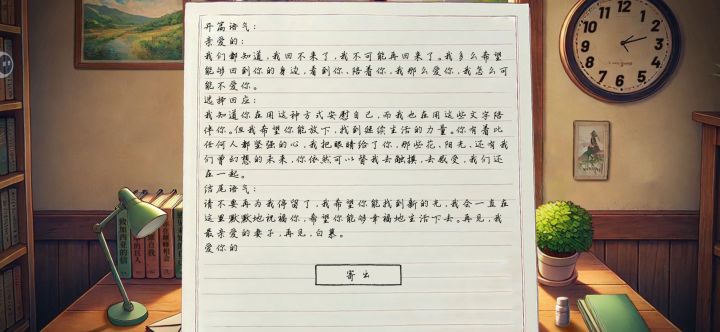 开篇语气：
亲爱的：
我们都知道，我回不来了，我不可能再回来了。我多么希望
能够回到你的身边，看到你、陪着你，我那么爱你，我怎么可
能不爱你。
选择回应：
我知道你在用这种方式安慰自己，而我也在用这些文字陪
伴你。但我希望你能放下，找到继续生活的力量。你有着比
任何人都坚强的心，我把眼睛给了你，那些花、阳光、还有我
们曾幻想的未来，你依然可以替我去触摸、去感受，我们还
在一起。
结尾语气：
请不要再为我停留了，我希望你能找到新的光，我会一直在
这里默默地祝福你，希望你能够幸福地生活下去。再见，我
最亲爱的妻子，再见，白慕。
爱你的
寄出